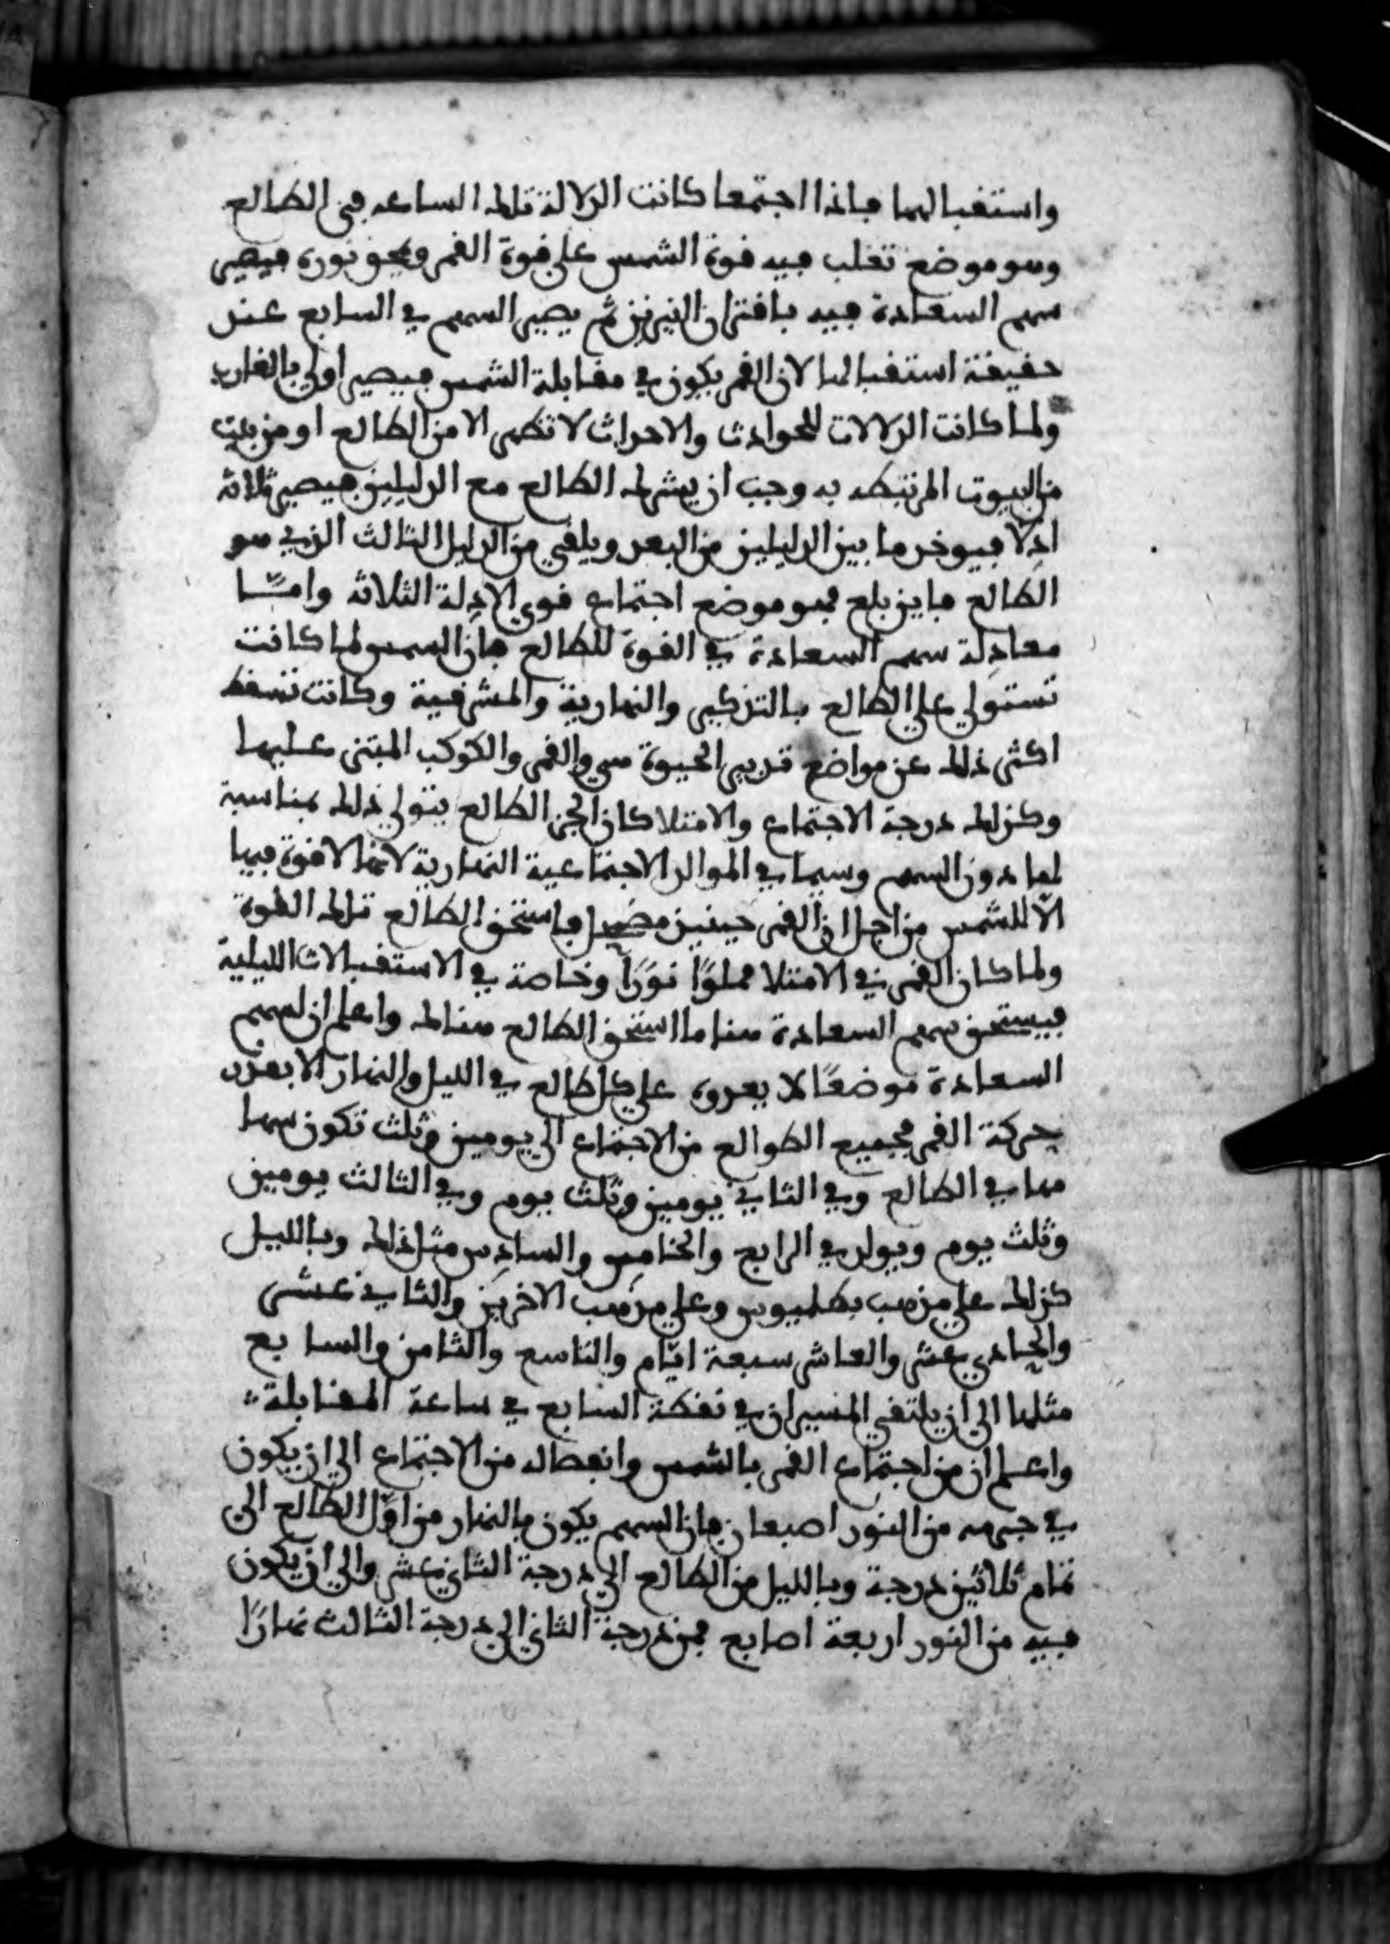 واستقبالهما فاذا اجتمعا كانت الدلالة تلك الساعه في الطالع
وهو موضع تغلب فيه قوة الشمس على قوة القمر ويمحق نوره فيصير
سهم السعادة فيه باقتران النيرين ثم يصير السهم في السابع عند
حقيقة استقبالهما لان القمر يكون في مقابلة الشمس فيصير اولى بالغارب
ولما كانت الدلالات للحوادث والاحداث لا تظهر الا من الطالع او من بيت
من البيوت المرتبطه به وجب ان يشرك الطالع مع الدليلين فيصير ثلاثه
ادلا فيوخذ ما بين الدليلين من البعد ويلقى من الدليل الثالث الذي هو
الطالع فاين بلغ فهو موضع اجتماع قوى الادلة الثلاثه وامّا
معادلة سهم السعادة في القوة للطالع فان الشمس لما كانت
تستولي على الطالع بالتذكير والنهارية والمشرقية وكانت تسقط
اكثر ذلك عن مواضع تدبير الحيوة هي والقمر والكوكب المبتنى عليها
وكذلك درجة الاجتماع والامتلا كان الجزء الطالع يتولى ذلك بمناسبة
لها دون السهم وسيما في الموالد الاجتماعية النهارية لانها لا قوة فيها
الا للشمس من اجل ان القمر حينيذ فاستحق الطالع تلك القوة
ولما كان القمر في الامتلا مملوًا نورًا وخاصة في الاستقبالات الليلية
فيستحق سهم السعادة هنا ما استحق الطالع هنالك واعلم ان لسهم
السعادة موضعًا لا يعدوه على كل طالع في الليل والنهار الا بقدر
حركة القمر فجميع الطوالع من الاجتماع الى يومين وثلث تكون سها
مها في الطالع وفي الثاني يومين وثلث يوم وفي الثالث يومين
وثلث يوم ويولد في الرابع والخامس والسادس مثل ذلك وبالليل
كذلك على مذهب بطلميوس وعلى مذهب الاخرين والثاني عشر
والحادي عشر والعاشر سبعة ايام والتاسع والثامن والسابع
مثلها الى ان يلتقي المسيران في نقطة السابع في ساعة المقابلة
واعلم ان من اجتماع القمر بالشمس وانفصاله من الاجتماع الى ان يكون
في جرمه من النور اصبعان فان السهم يكون بالنهار من اوّل الطالع الى
تمام ثلاثين درجة وبالليل من الطالع الى درجة الثاني عشر والى ان يكون
فيه من النور اربعة اصابع فمن درجة الثاني الى درجة الثالث نهارًا